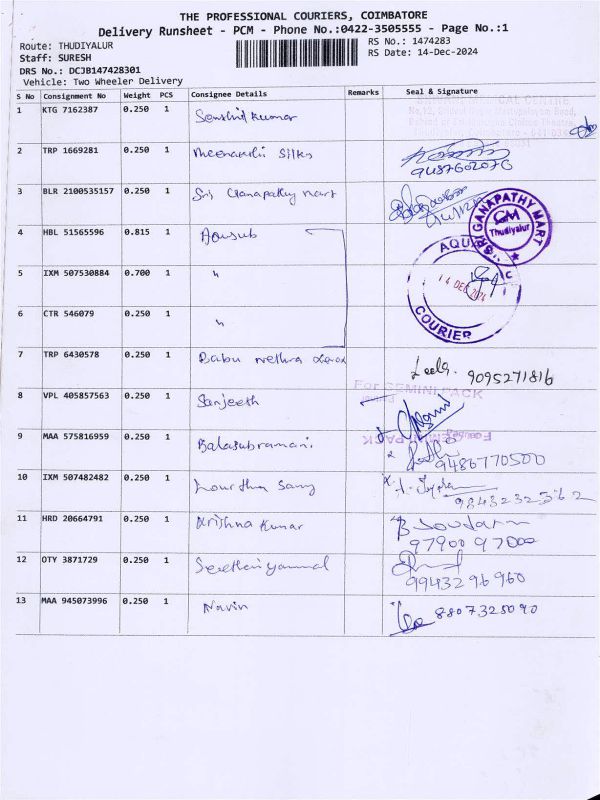 THE PROFESSIONAL COURIERS, COIMBATORE
Delivery Runsheet - PCM - Phone No.:0422-3505555 - Page No.:1
Route: THUDIYALUR
RS No.: 1474283
Staff: SURESH
RS Date: 14-Dec-2024
DRS No.: DCJB147428301
Vehicle: Two Wheeler Delivery
S No Consignment No Weight PCS Consignee Details Remarks Seal & Signature
1 KTG 7162387 0.250 1 Kumar
2 TRP 1669281 0.250 1 Meenakshi Silks
9487602070
3 BLR 2100535157 0.250 1 Sri Ganapathy mart
SRI GANAPATHY MART
Thudiyalur
4 HBL 51565596 0.815 1
5 IXM 507530884 0.700 1 "
14 DEC 2024
COURIER
6 CTR 546079 0.250 1 "
7 TRP 6430578 0.250 1 Babu Nethra Xerox
Leela. 9095271816
For GEMINI PACK
8 VPL 405857563 0.250 1 Sanjeeth
9 MAA 575816959 0.250 1 Balasubramani
For GEMINI PACK
9486770500
10 IXM 507482482 0.250 1 Lourdhu Samy
9843232562
11 HRD 20664791 0.250 1 Krishna Kumar
97900 97000
12 OTY 3871729 0.250 1
99432 96960
13 MAA 945073996 0.250 1 Navin
8807325090